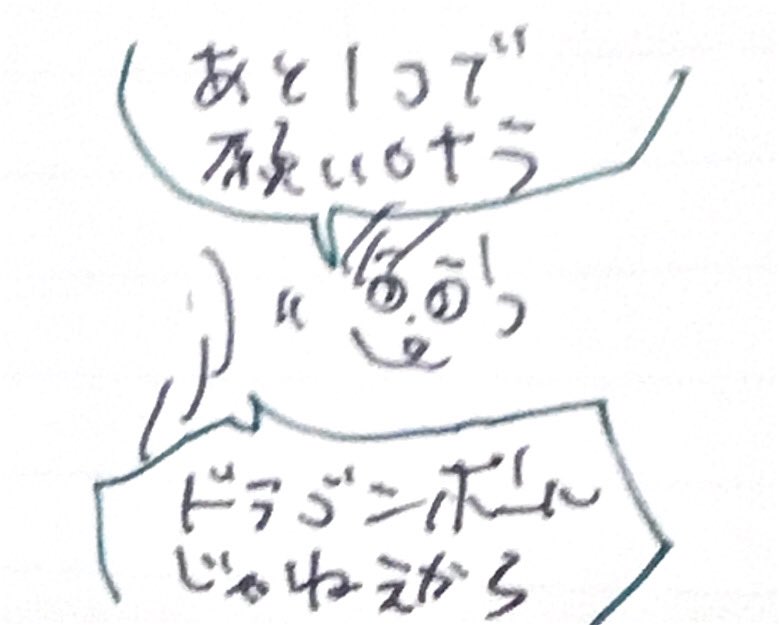 あと1つで
願いカナう
ドラゴンボール
じゃねえから